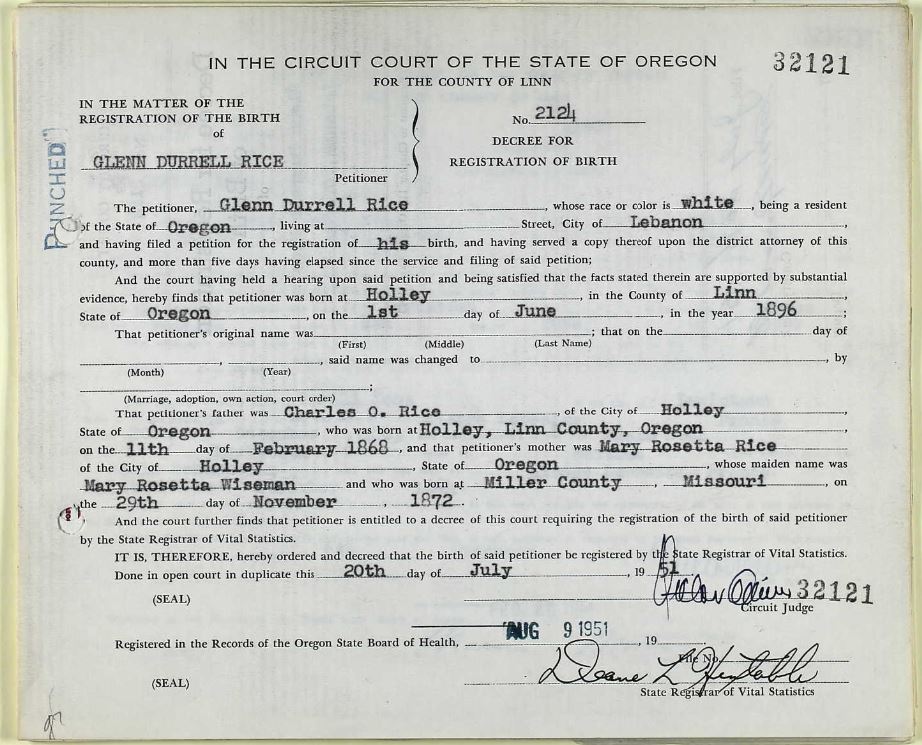 IN THE CIRCUIT COURT OF THE STATE OF OREGON
32121
FOR THE COUNTY OF LINN
IN THE MATTER OF THE
REGISTRATION OF THE BIRTH
of
GLENN DURRELL RICE
Petitioner
No. 2124
DECREE FOR
REGISTRATION OF BIRTH
PUNCHED
The petitioner, Glenn Durrell Rice, whose race or color is white, being a resident
of the State of Oregon, living at Street, City of Lebanon
and having filed a petition for the registration of his birth, and having served a copy thereof upon the district attorney of this
county, and more than five days having elapsed since the service and filing of said petition;
And the court having held a hearing upon said petition and being satisfied that the facts stated therein are supported by substantial
evidence, hereby finds that petitioner was born at Holley, in the County of Linn,
State of Oregon, on the 1st day of June, in the year 1896;
That petitioner's original name was ; that on the day of
(First) (Middle) (Last Name)
, , said name was changed to , by
(Month) (Year)
;
(Marriage, adoption, own action, court order)
That petitioner's father was Charles O. Rice, of the City of Holley,
State of Oregon, who was born at Holley, Linn County, Oregon
on the 11th day of February 1868, and that petitioner's mother was Mary Rosetta Rice
of the City of Holley, State of Oregon, whose maiden name was
Mary Rosetta Wiseman and who was born at Miller County, Missouri, on
the 29th day of November, 1872.
And the court further finds that petitioner is entitled to a decree of this court requiring the registration of the birth of said petitioner
by the State Registrar of Vital Statistics.
IT IS, THEREFORE, hereby ordered and decreed that the birth of said petitioner be registered by the State Registrar of Vital Statistics.
Done in open court in duplicate this 20th day of July, 19 51
(SEAL)
32121
Circuit Judge
AUG 9 1951
Registered in the Records of the Oregon State Board of Health, , 19
File No.
Deane L. Huxtable
(SEAL)
State Registrar of Vital Statistics